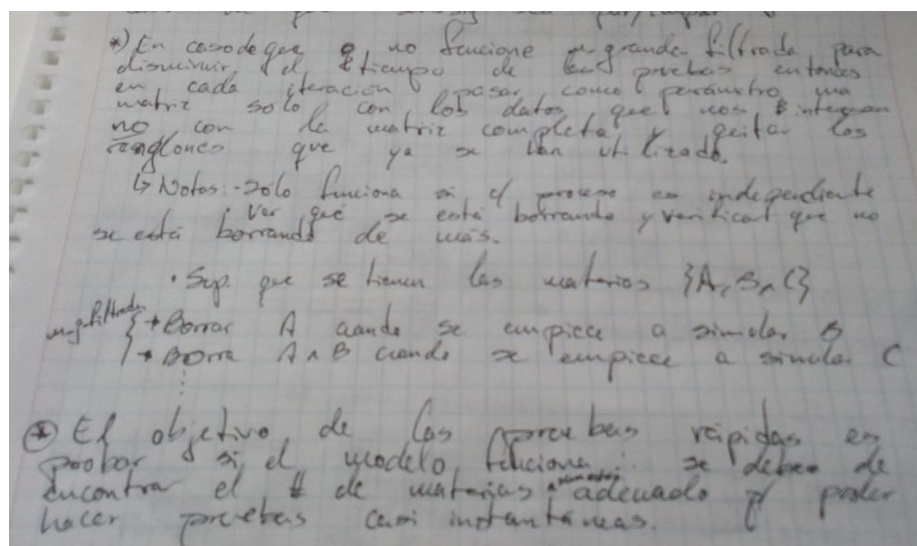 *) En caso de que no funcione m_grande_filtrada para
disminuir el tiempo de las pruebas entonces
en cada iteración pasar como parámetro una
matriz solo con los datos que nos interesan
no con la matriz completa y quitar los
renglones que ya se han utilizado.
↳ Notas: · Solo funciona si el proceso es independiente
· Ver que se está borrando y verificar que no
se está borrando de más.
· Sup. que se tienen las materias {A, B, C}
→ Borrar A cuando se empiece a simular B
→ Borra A ∧ B cuando se empiece a simular C
⊛ El objetivo de las pruebas rápidas es
probar si el modelo funciona ∴ se deben de
encontrar el # de materias adecuado p/ poder
hacer pruebas casi instantáneas.